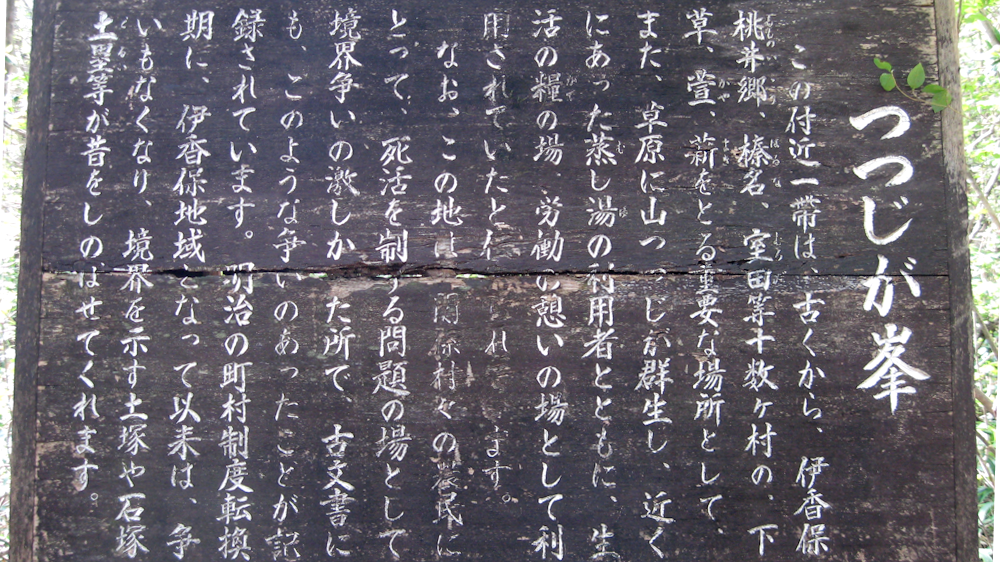 つつじが峯
この付近一帯は、古くから、伊香保
桃井郷、榛名、室田等十数ヶ村の、下
草、萱、薪をとる重要な場所として、
また、草原に山つつじが群生し、近く
にあった蒸し湯の利用者とともに、生
活の糧の場、労働の憩いの場として利
用されていたと伝 れ ます。
なお、この地は 関係村々の農民に
とって、死活を制する問題の場として
境界争いの激しか た所で、古文書に
も、このような争いのあったことが記
録されています。明治の町村制度転換
期に、伊香保地域となって以来は、争
いもなくなり、境界を示す土塚や石塚
土塁等が昔をしのばせてくれます。